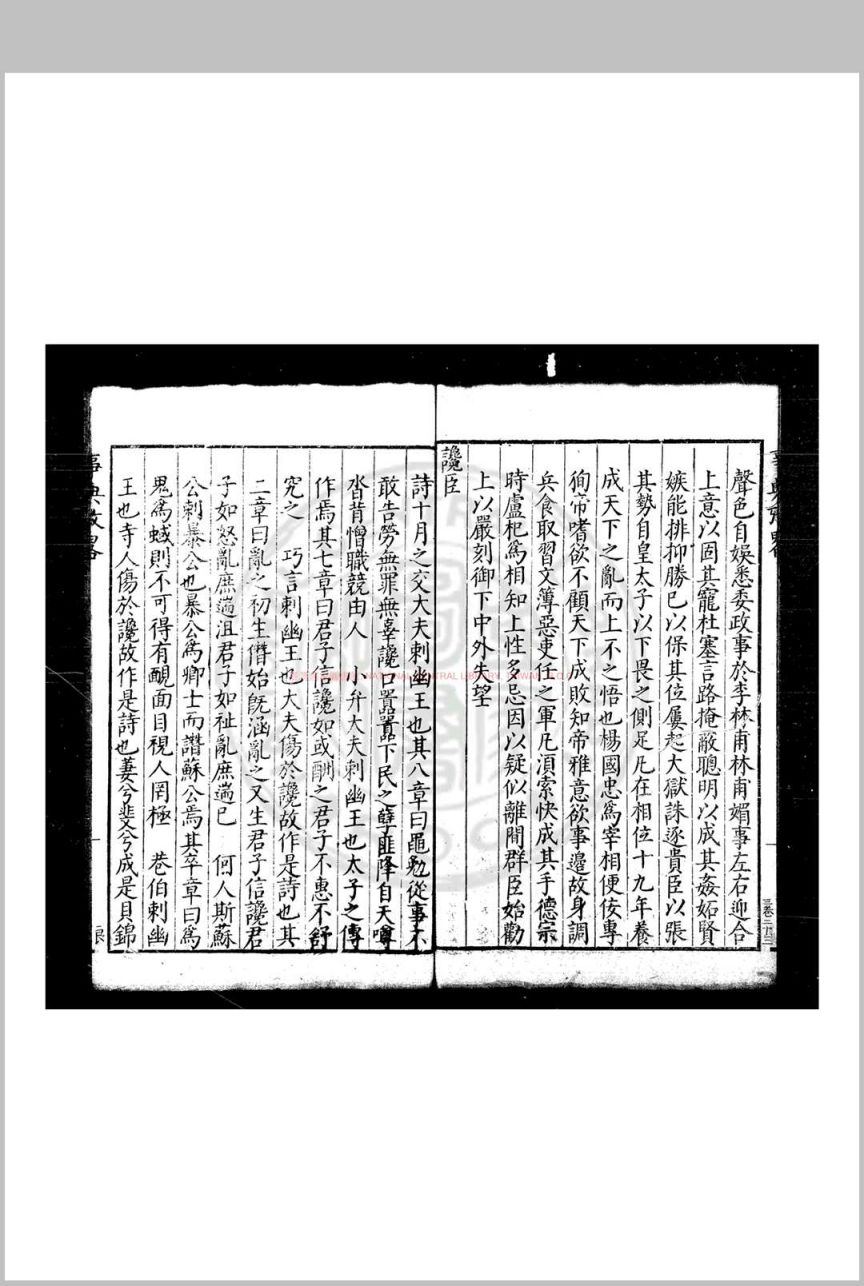 聲色自娛悉委政事於李林甫林甫媚事左右迎合
上意以固其寵杜塞言路掩蔽聰明以成其姦妬賢
嫉能排抑勝已以保其位屢起大獄誅逐貴臣以張
其勢自皇太子以下畏之側足凡在相位十九年養
成天下之亂而上不之悟也楊國忠爲宰相便佞專
徇帝嗜欲不顧天下成敗知帝雅意欲事邉故身調
兵食取習文簿惡吏任之軍凡湏索快成其手德宗
時盧杞爲相知上性多忌因以疑似離間群臣始勸
上以嚴刻御下中外失望
讒臣
詩十月之交大夫刺幽王也其八章曰黽勉從事不
敢告勞無罪無辜讒口囂囂下民之孽匪降自天噂
沓背憎職競由人 小弁大夫刺幽王也太子之傅
作焉其七章曰君子信讒如或酬之君子不惠不舒
究之 巧言刺幽王也大夫傷於讒故作是詩也其
二章曰亂之初生僭始旣涵亂之又生君子信讒君
子如怒亂庶遄沮君子如祉亂庶遄已 何人斯蘇
公刺暴公也暴公爲卿士而譖蘇公焉其卒章曰爲
鬼爲蜮則不可得有靦面目視人罔極 巷伯刺幽
王也寺人傷於讒故作是詩也萋兮斐兮成是貝錦